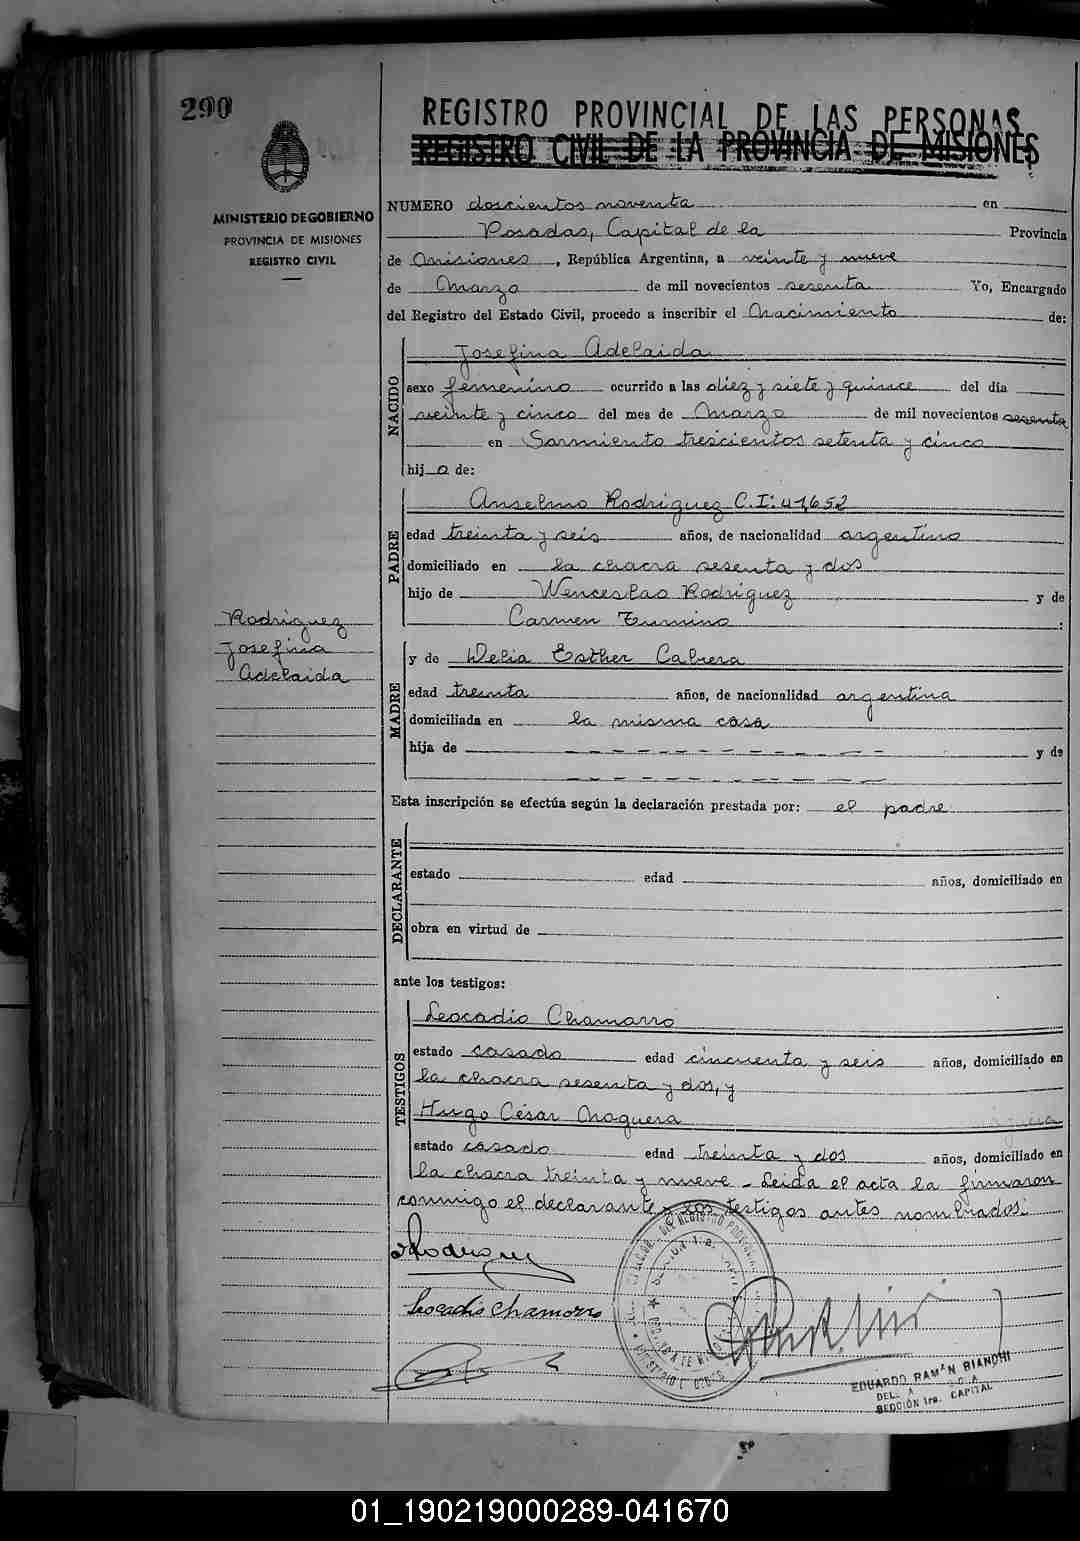 290
REGISTRO PROVINCIAL DE LAS PERSONAS
REGISTRO CIVIL DE LA PROVINCIA DE MISIONES
MINISTERIO DE GOBIERNO
PROVINCIA DE MISIONES
REGISTRO CIVIL
NUMERO doscientos noventa en
Posadas, Capital de la Provincia
de Misiones, República Argentina, a veinte y nueve
de Marzo de mil novecientos sesenta Yo, Encargado
del Registro del Estado Civil, procedo a inscribir el Nacimiento de:
NACIDO
Josefina Adelaida
sexo femenino ocurrido a las diez y siete y quince del día
veinte y cinco del mes de Marzo de mil novecientos sesenta
en Sarmiento trescientos setenta y cinco
hija de:
PADRE
Anselmo Rodriguez C.I: 41,652
edad treinta y seis años, de nacionalidad argentino
domiciliado en la chacra sesenta y dos
hijo de Wenceslao Rodriguez y de
Carmen :
Rodriguez
Josefina
Adelaida
MADRE
y de Delia Esther Cabrera
edad treinta años, de nacionalidad argentina
domiciliada en la misma casa
hija de y de
Esta inscripción se efectúa según la declaración prestada por: el padre
DECLARANTE
estado edad años, domiciliado en
obra en virtud de
ante los testigos:
TESTIGOS
Leocadio Chamorro
estado casado edad cincuenta y seis años, domiciliado en
la chacra sesenta y dos, y
Hugo César Noguera
estado casado edad treinta y dos años, domiciliado en
la chacra treinta y nueve - Leida el acta la firmaron
conmigo el declarante y los testigos antes nombrados:
Leocadio Chamorro
EDUARDO RAMÓN BIANCHI
SECCIÓN 1ra. CAPITAL
01_190219000289-041670